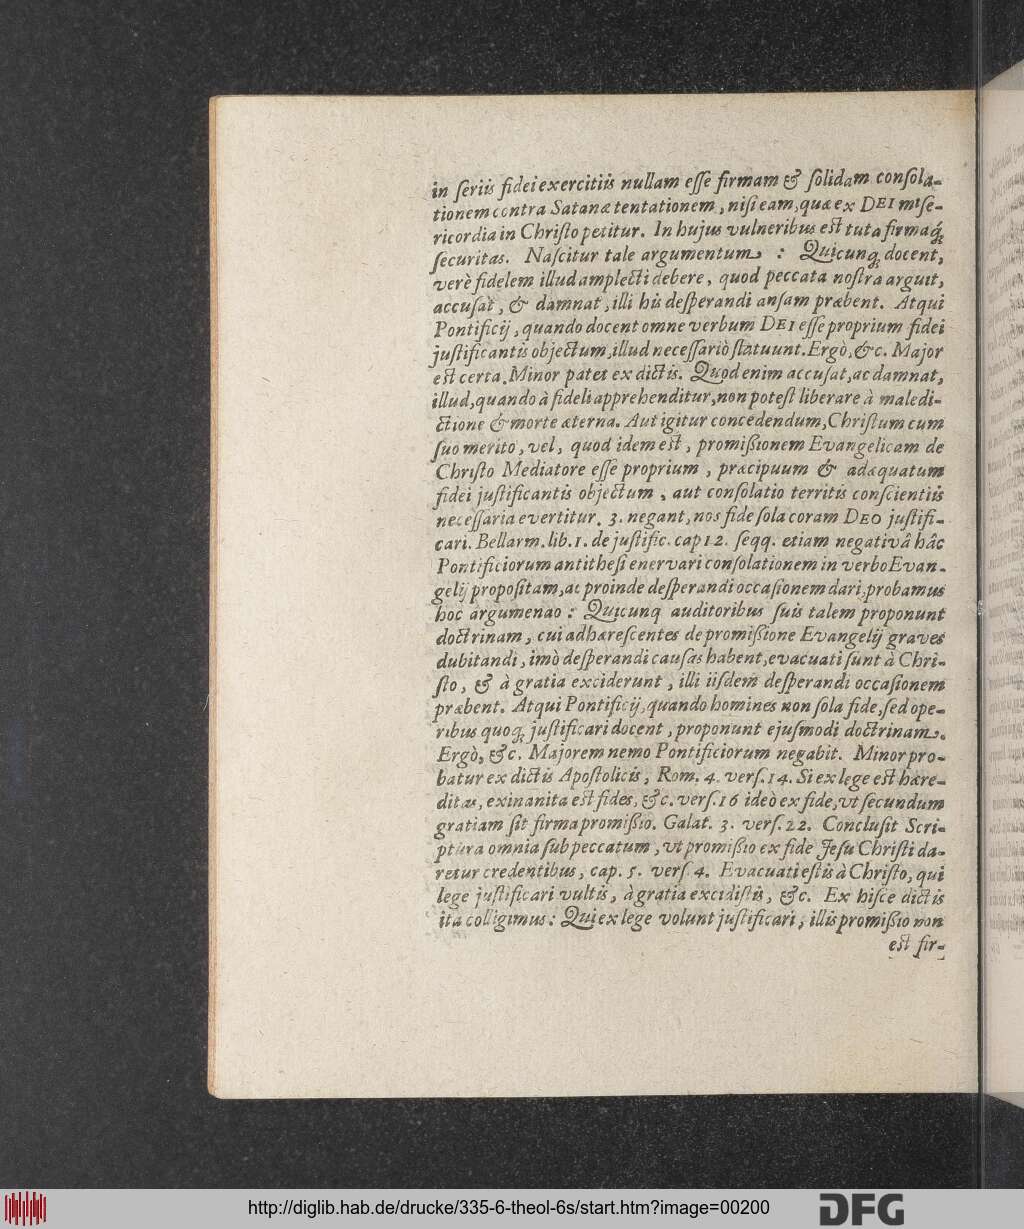 in ſeriis fidei exercitiis nullam eſſe firmam & ſolidam conſola-
tionem contra Satanæ tentationem, niſi eam, quæ ex DEI miſe-
ricordia in Chriſto petitur. In hujus vulneribus eſt tuta firmaq́;
ſecuritas. Naſcitur tale argumentum: Quicunq; docent,
verè fidelem illud amplecti debere, quod peccata noſtra arguit,
accuſat, & damnat, illi his deſperandi anſam præbent. Atqui
Pontificij, quando docent omne verbum DEI eſſe proprium fidei
juſtificantis objectum, illud neceſſariò ſtatuunt. Ergò, &c. Major
eſt certa. Minor patet ex dictis. Quod enim accuſat, ac damnat,
illud, quando à fideli apprehenditur, non poteſt liberare à maledi-
ctione & morte æterna. Aut igitur concedendum, Chriſtum cum
ſuo merito, vel, quod idem eſt, promißionem Evangelicam de
Chriſto Mediatore eſſe proprium, præcipuum & adæquatum
fidei juſtificantis objectum, aut conſolatio territis conſcientiis
neceſſaria evertitur. 3. negant, nos fide ſola coram DEO juſtifi-
cari. Bellarm. lib. 1. de juſtific. cap 12. ſeqq. etiam negativâ hâc
Pontificiorum antitheſi enervari conſolationem in verbo Evan-
gelij propoſitam, ac proinde deſperandi occaſionem dari, probamus
hoc argumenao: Quicunq auditoribus ſuis talem proponunt
doctrinam, cui adhæreſcentes de promißione Evangelij graves
dubitandi, imò deſperandi cauſas habent, evacuati ſunt à Chri-
ſto, & à gratia exciderunt, illi iiſdem deſperandi occaſionem
præbent. Atqui Pontificij, quando homines non ſola fide, ſed ope-
ribus quoq; juſtificari docent, proponunt ejuſmodi doctrinam.
Ergò, &c. Majorem nemo Pontificiorum negabit. Minor pro-
batur ex dictis Apoſtolicis, Rom. 4. verſ. 14. Si ex lege eſt hære-
ditas, exinanita eſt fides, &c. verſ. 16 ideò ex fide, vt ſecundum
gratiam ſit firma promißio. Galat. 3. verſ. 22. Concluſit Scri-
ptura omnia ſub peccatum, vt promißio ex fide Jeſu Chriſti da-
retur credentibus, cap. 5. verſ. 4. Evacuati eſtis à Chriſto, qui
lege juſtificari vultis, à gratia excidiſtis, &c. Ex hiſce dictis
ita colligimus: Qui ex lege volunt juſtificari, illis promißio non
eſt fir-
http://diglib.hab.de/drucke/335-6-theol-6s/start.htm?image=00200
DFG